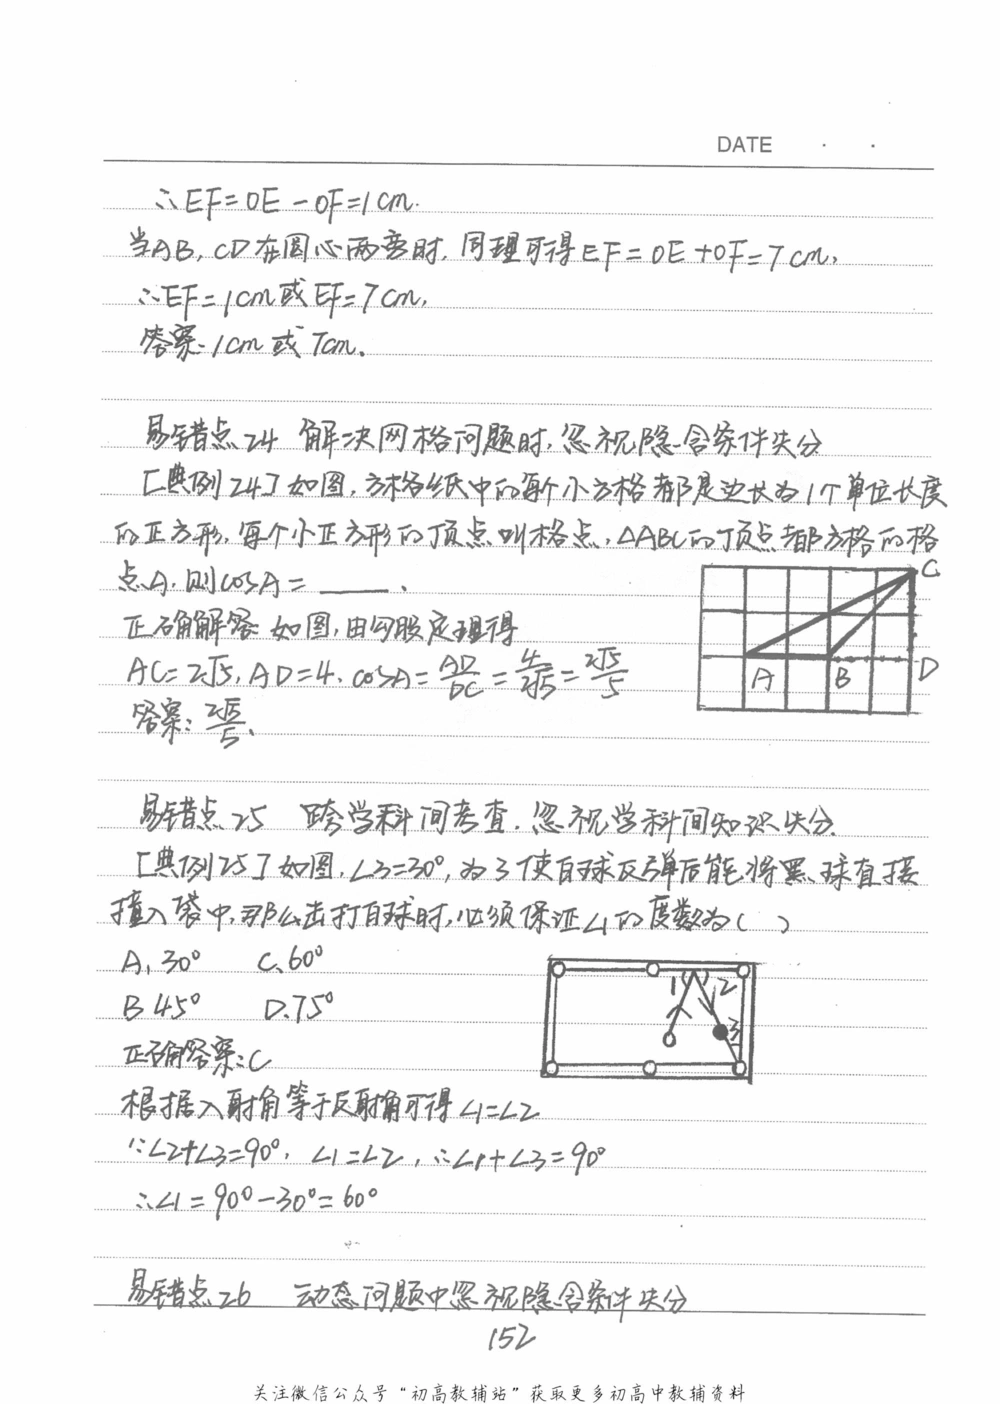 DATE
∴EF=OE-OF=1cm.
当AB,CD在圆心两旁时,同理可得EF=OE+OF=7cm,
∴EF=1cm或EF=7cm,
答案:1cm或7cm.
易错点24 解决网格问题时,忽视隐含条件失分
[典例24]如图,方格纸中的每个小方格都是边长为1个单位长度
的正方形,每个小正方形的顶点叫格点,△ABC的顶点都方格的格
点A.则cosA=____.
C
正确解答:如图,由勾股定理得
AC=2√5,AD=4.cosA=AD/DC=4/2√5=2√5/5
A B D
答案:2√5/5.
易错点25 跨学科间考查,忽视学科间知识失分.
[典例25]如图,∠3=30°,为了使白球反弹后能将黑球直接
撞入袋中,那么击打白球时,必须保证∠1的度数为( )
A.30° C.60°
B.45° D.75°
1 2
3
正确答案:C
根据入射角等于反射角可得∠1=∠2
∵∠2+∠3=90°,∠1=∠2,∴∠1+∠3=90°
∴∠1=90°-30°=60°
易错点26 动态问题中忽视隐含条件失分
152
关注微信公众号“初高教辅站”获取更多初高中教辅资料